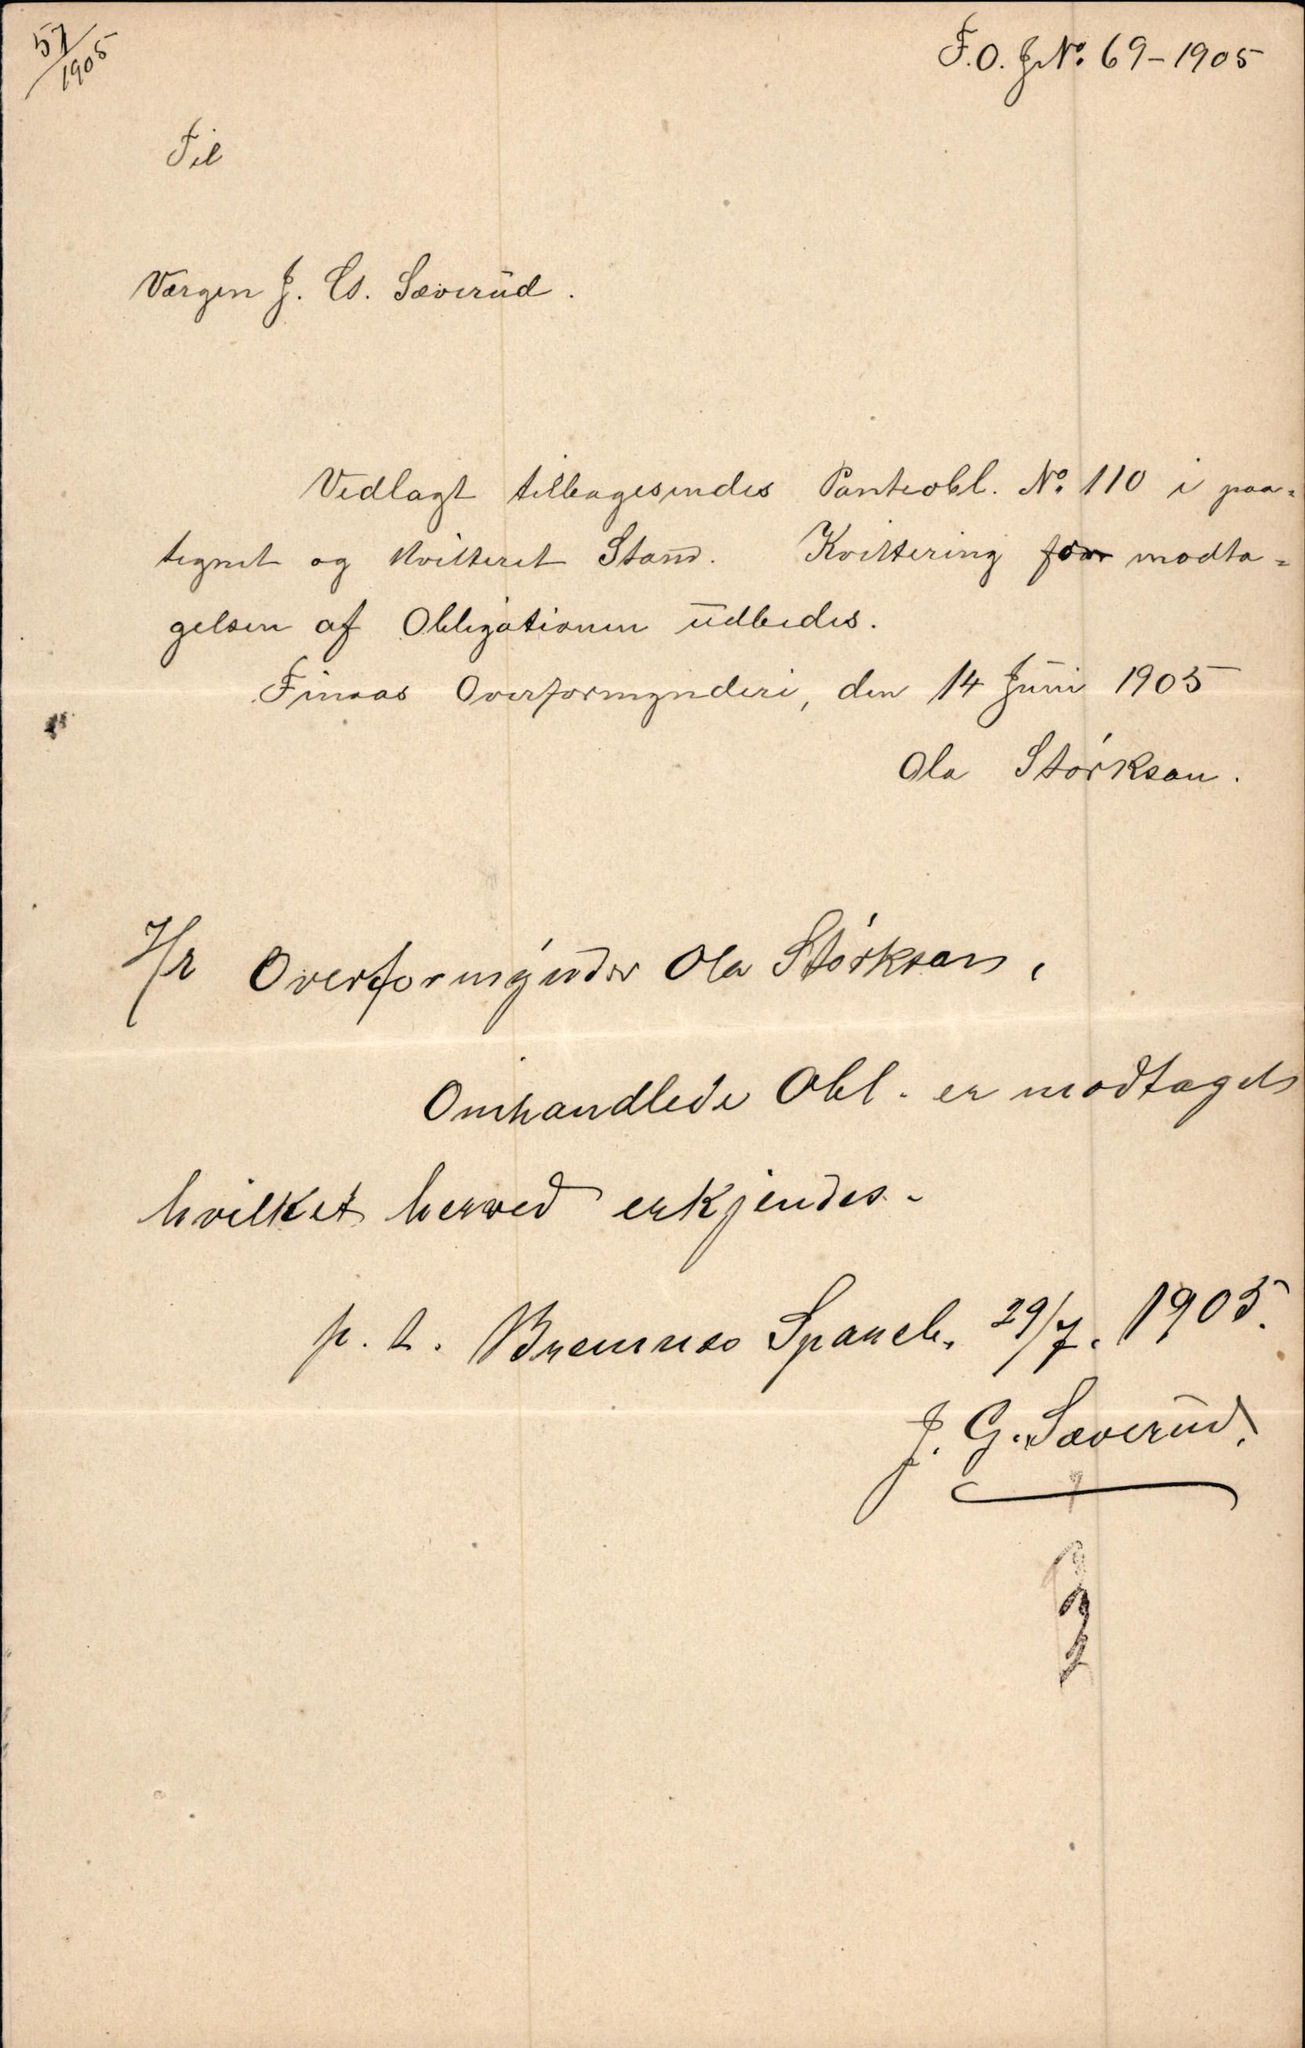 57/1905
F.O. JNo. 69-1905
Til
Værgen J. G. Sæverud.
Vedlagt tilbagesendes Panteobl. No. 110 i paa-
tegnet og kvitteret Stand. Kvittering for modta-
gelsen af Obligationen udbedes.
Finaas Overformynderi, den 14 Juni 1905
Ola Størksen.
Hr Overformynder Ola Størksen,
Omhandlede Obl. er modtaget
hvilket herved erkjendes.
p.t. Bremnes Spareb. 29/7. 1905.
J. G. Sæverud.